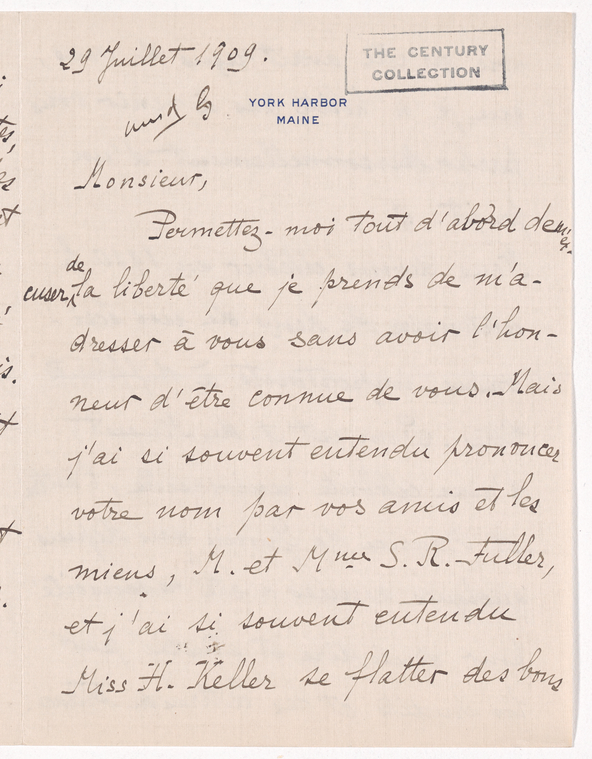 29 Juillet 1909.
THE CENTURY
COLLECTION
YORK HARBOR
MAINE
Monsieur,
Permettez-moi tout d'abord de m'ex-
cuser de la liberté que je prends de m'a-
dresser à vous sans avoir l'hon-
neur d'être connue de vous. Mais
j'ai si souvent entendu prononcer
votre nom par vos amis et les
miens, M. et Mme S. R. Fuller,
et j'ai si souvent entendu
Miss H. Keller se flatter des bons